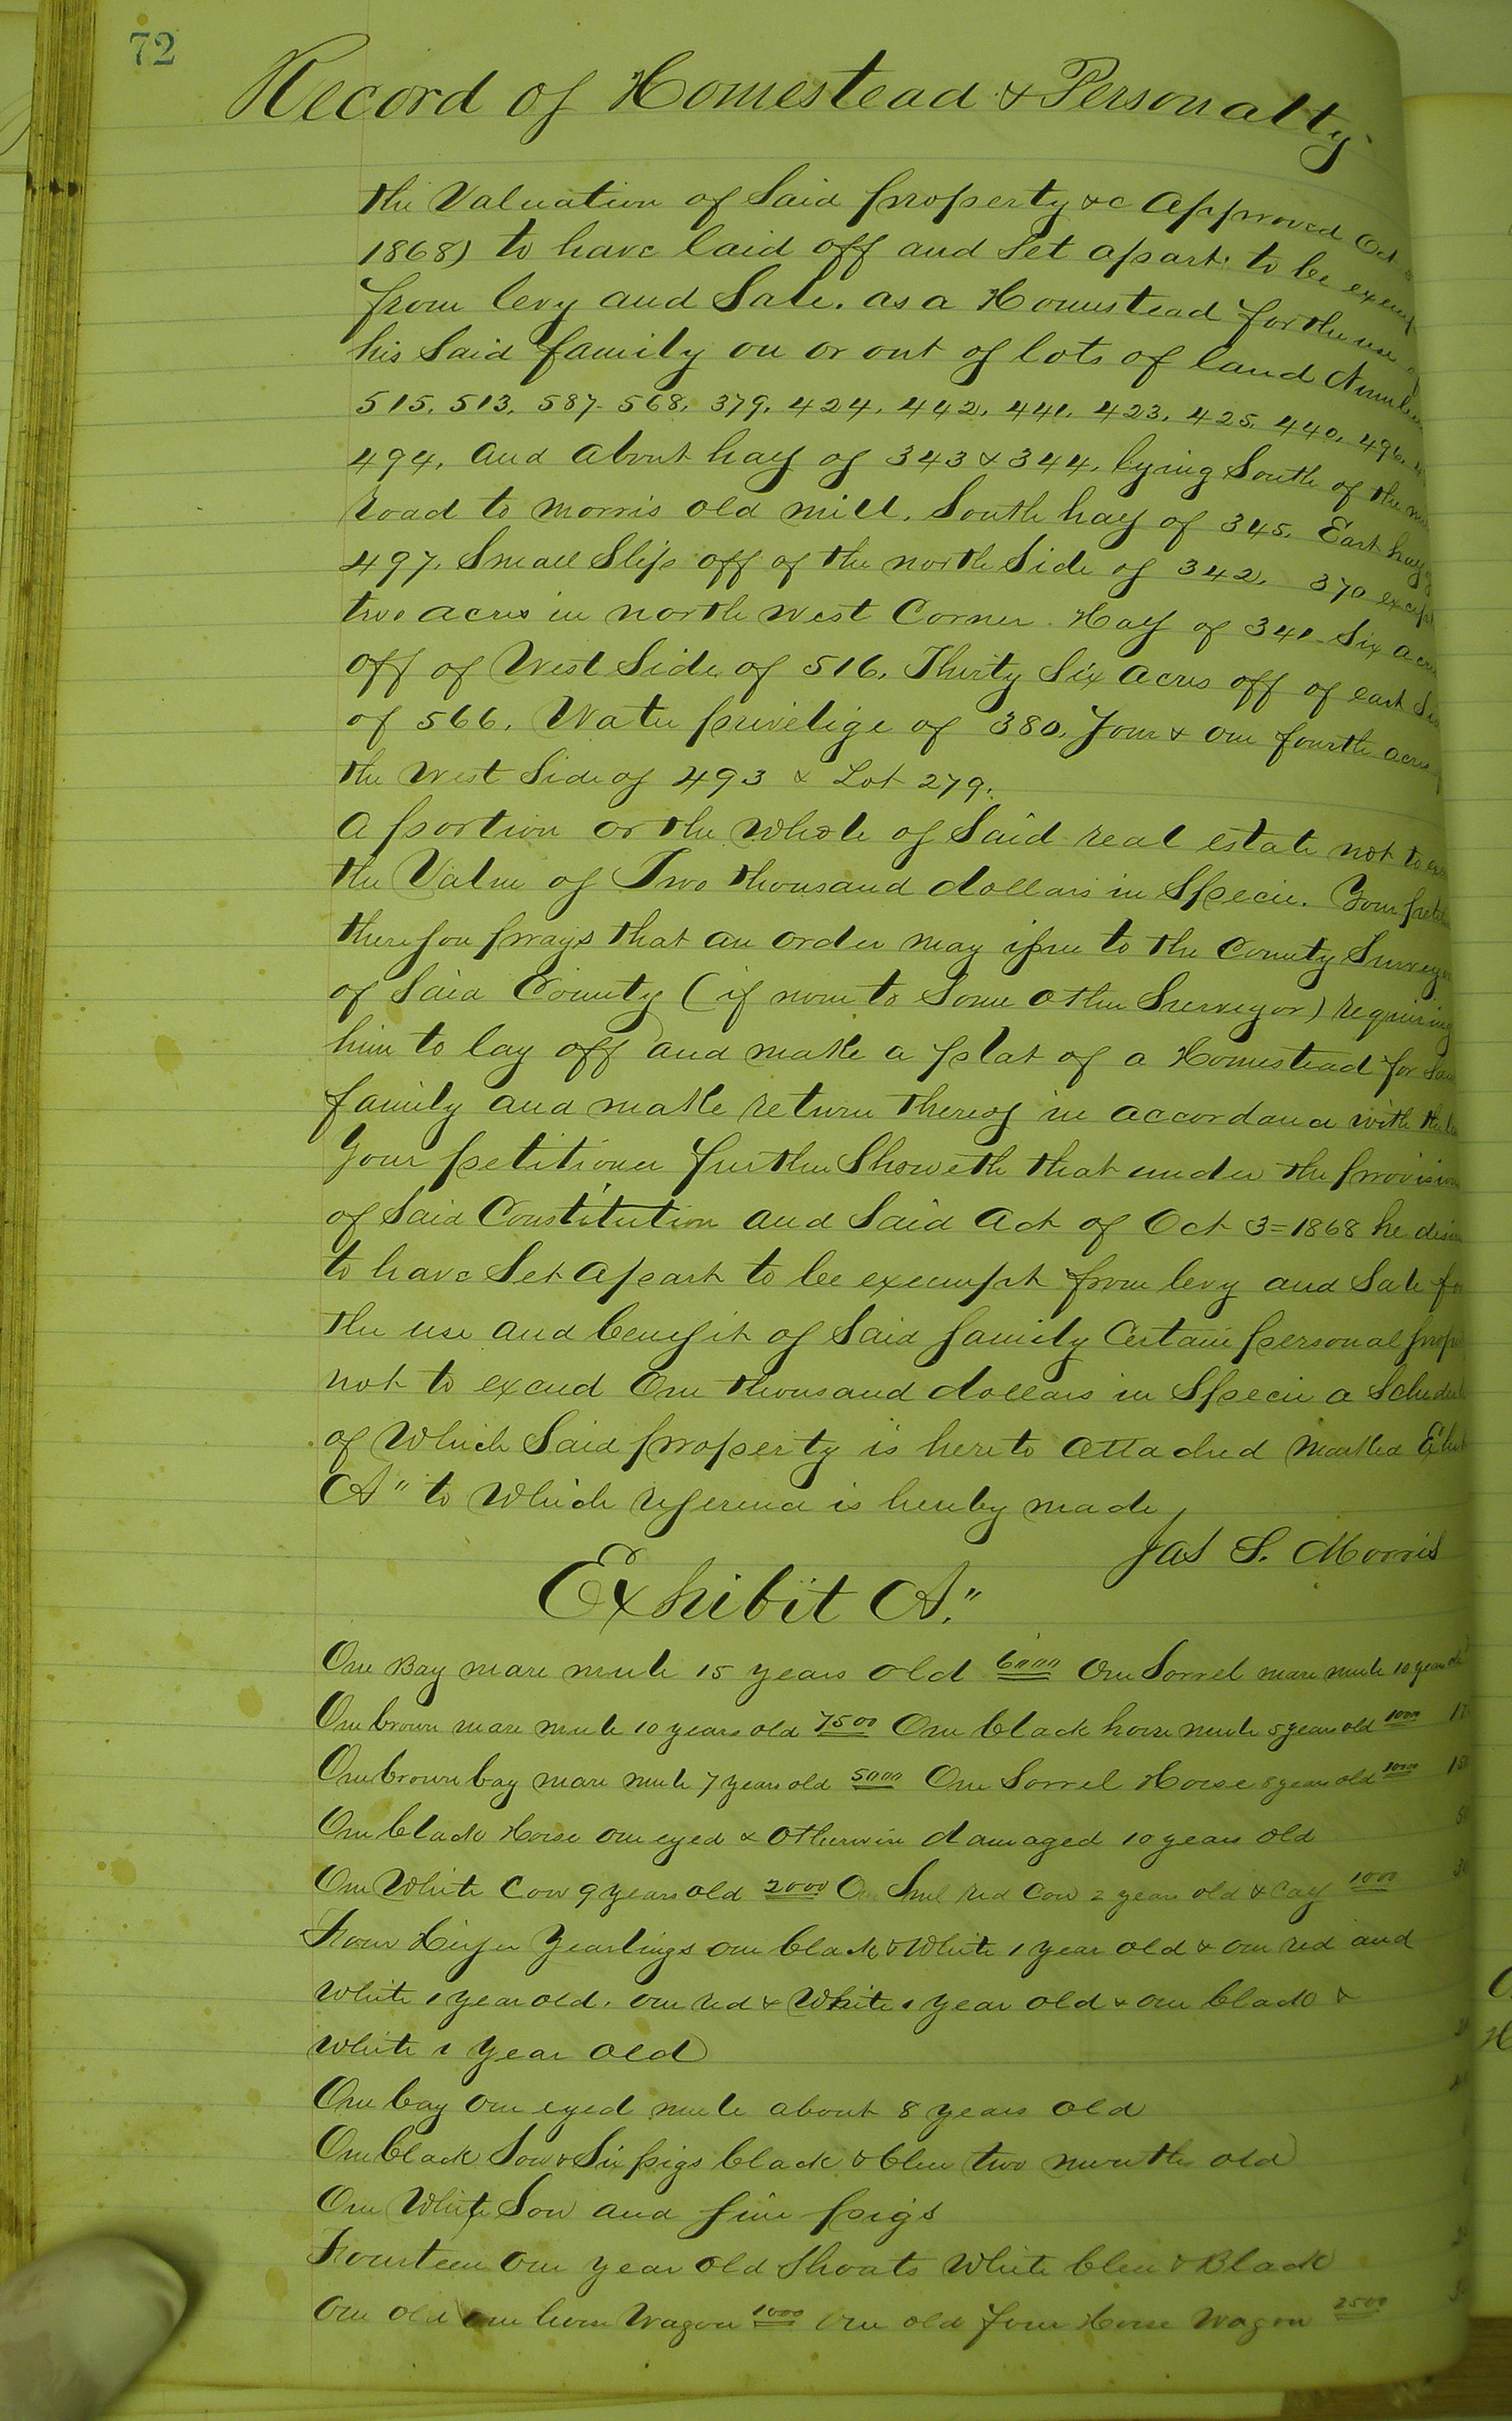 72
Record of Homestead & Personalty
the Valuation of Said property &c Approved Oct
1868) to have laid off and Set apart to be exempt
from levy and Sale. as a Homestead for the use of
his Said family on or out of lots of land Number
515. 513. 587. 568. 379. 424. 442. 441. 423. 425. 440. 496.
494. And About half of 343 & 344. lying South of the
road to Morris old mill. South half of 345. East half of
497. Small Slip off of the north Side of 342. 370 except
two acres in north west Corner. Half of 341. Six acres
off of West Side of 516. Thirty Six Acres off of east Side
of 566. Water privelige of 380. Four & one fourth acres
the West Side of 493 & Lot 279.
A portion or the Whole of Said real estate not to
the Value of Two thousand dollars in Specie. Your
therefore prays that an order may issue to the County Surveyor
of Said County (if none to Some other Surveyor) requiring
him to lay off and make a plat of a Homestead for Said
family and make return thereof in accordance with the
Your petitioner further Showeth that under the provision
of Said Constitution and Said Act of Oct 3= 1868 he
to have Set Apart to be exempt from levy and Sale for
the use and benefit of Said family Certain personal
not to exceed One thousand dollars in Specie a Schedule
of Which Said property is hereto Attached Marked
A" to Which reference is hereby made
Jas S. Morris
Exhibit A."
One Bay mare mule 15 years old 60 00 One Sorrel mare mule 10 years old
One brown mare mule 10 years old 75 00 One black horse mule 5 years old
One brown bay mare mule 7 years old 50 00 One Sorrel Horse 8 years old
One black Horse one eyed & Otherwise damaged 10 years old
One White Cow 9 years old 20 00 One Red Cow 2 years old & Calf 10 00
Four Heifer Yearlings one black & White 1 year old & one red and
White 1 year old. one red & White 1 year old & one black &
White 1 year old
One bay one eyed mule about 8 years old
One black Sow & Six pigs black & blue two months old
One White Sow and five pigs
Fourteen One year old Shoats White blue & Black
One old one horse Wagon 10 00 One old four Horse Wagon 25 00